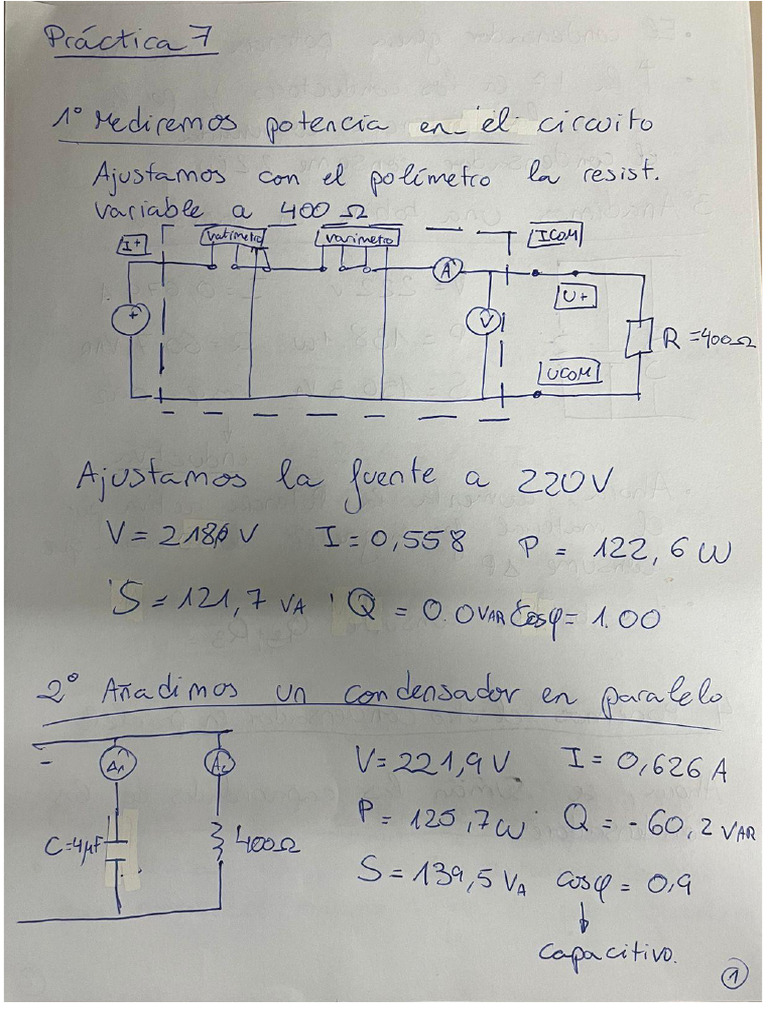 Práctica 7
1º Mediremos potencia en el circuito
Ajustamos con el polímetro la resist.
variable a 400 Ω
I+ vatimetro varimetro ICOM
A
U+
+ V R=400Ω
UCOM
Ajustamos la fuente a 220V
V = 218,6 V I = 0,558 P = 122,6 W
S = 121,7 VA Q = 0.0 VAR cosφ = 1.00
2º Añadimos un condensador en paralelo
A1 A2 V = 221,9 V I = 0,626 A
P = 125,7 W Q = -60,2 VAR
C=4μF 400Ω
S = 139,5 VA cosφ = 0,9
↓
capacitivo.
1